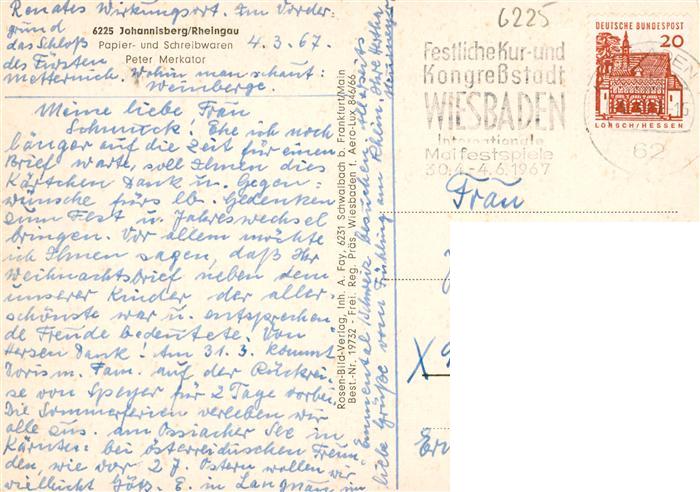 Renates Wirkungsort. Im Vorder-
grund
das Schloß
des Fürsten
Metternich. Wohin man schaut:
Weinberge.
6225 Johannisberg/Rheingau
Papier- und Schreibwaren
Peter Merkator
4.3.67.
Meine liebe Frau
Schmuck! Ehe ich noch
länger auf die Zeit für einen
Brief warte, soll Ihnen dies
Kärtchen Dank u. Gegen-
wünsche fürs lb. Gedenken
zum Fest u. Jahreswechsel
bringen. Vor allem möchte
ich Ihnen sagen, daß Ihr
Weihnachtsbrief neben dem
unserer Kinder der aller-
schönste war u. entsprechen-
de Freude bedeutete. Von
Herzen Dank! Am 31.3. kommt
Doris m. Fam. auf der Rückrei-
se von Speyer für 2 Tage vorbei.
Die Sommerferien verleben wir
alle zus. am Ossiacher See in
Kärnten: bei österreichischen Freun-
den, wie vor 2 J. Ostern wollen wir
vielleicht Götz. E. in Langnau im
Emmental/Schweiz besuchen. Allerseits
liebe Grüße vom Frühling am Rhein. Ihre
Rosen-Bild-Verlag, Inh. A. Fay, 6231 Schwalbach b. Frankfurt/Main
Best.-Nr. 19732 - Frei. Reg. Präs. Wiesbaden f. Aero-Lux 846/66
6225
Festliche Kur- und
Kongreßstadt
WIESBADEN
Internationale
Maifestspiele
30.4.-4.6.1967
DEUTSCHE BUNDESPOST
20
LORSCH/HESSEN
62
Frau